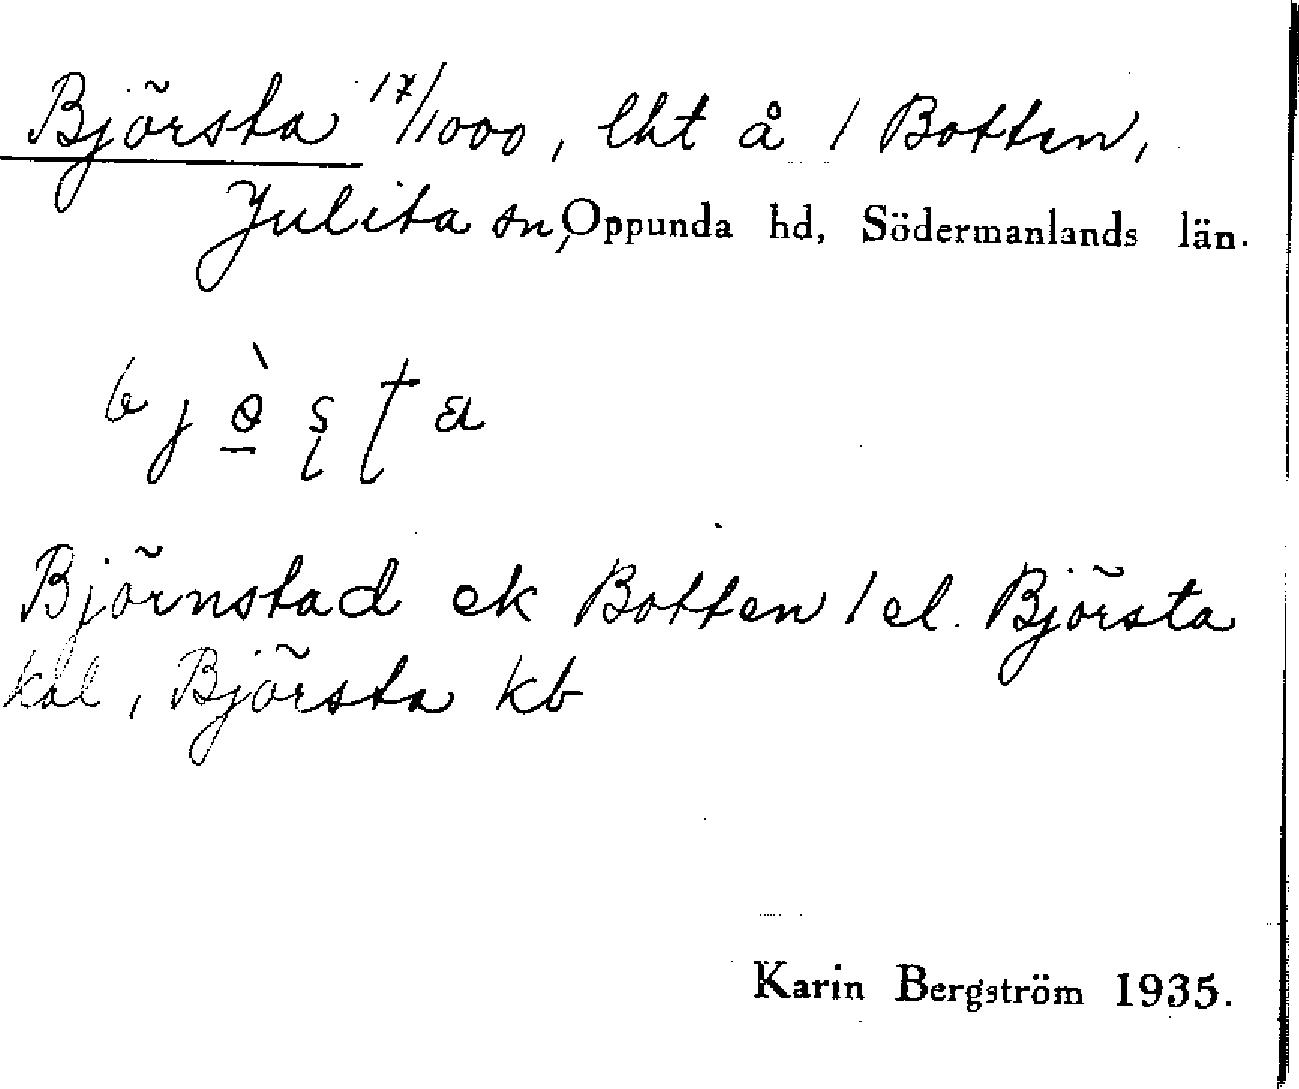 Björsta 17/1000, lht å 1 Botten,
Julita sn, Oppunda hd, Södermanlands län.
Björnstad ek Botten 1 el. Björsta
kal, Björsta kb
Karin Bergström 1935.